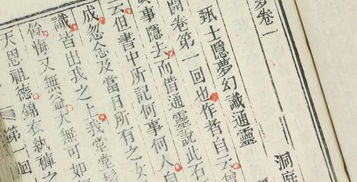 夢卷一
洞庭
甄士隱夢幻識通靈
開卷第一回也作者自云
事隱去而借通靈說此石
云但書中所記何事何人自
成忽念及當日所有之女
識皆出我之上我堂堂
餘悔又無益大無可如
天恩祖德錦衣紈褲之
第一回